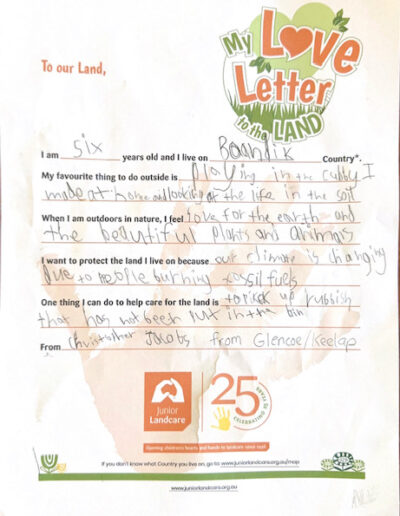 My Love
Letter
to the LAND
To our Land,
I am six years old and I live on Boandik Country*.
My favourite thing to do outside is playing in the cubby I
made at home and looking at the life in the soil
When I am outdoors in nature, I feel love for the earth and
the beautiful plants and animals
I want to protect the land I live on because our climate is changing
due to people burning fossil fuels
One thing I can do to help care for the land is to pick up rubbish
that has not been put in the bin.
From Christopher Jacobs from Glencoe/Keelap
Junior
Landcare
25 YEARS
CELEBRATING
If you don't know what Country you live on, go to: www.juniorlandcare.org.au/map
www.juniorlandcare.org.au